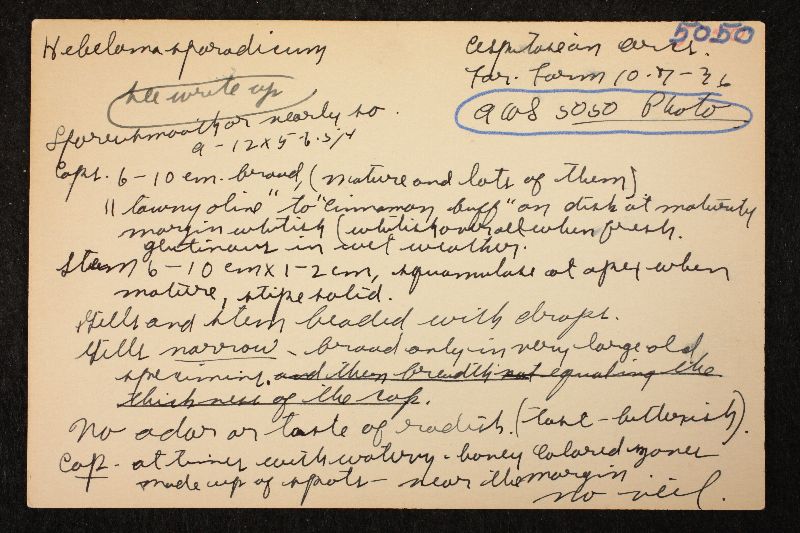 5050
Hebeloma sporadicum
Cespitose in arcs.
Far. Farm 10-7-36
see write up
aws 5050 Photo
Spores smooth or nearly so.
9-12 x 5-6.5 μ
Caps. 6-10 cm. broad, (mature and lots of them)
"tawny olive" to "cinnamon buff" on disk at maturity
margin whitish (whitish over all when fresh.
glutinous in wet weather.
Stem 6-10 cm x 1-2 cm, squamulose at apex when
mature, stipe solid.
Gills and stem beaded with drops.
Gills narrow - broad only in very large old
specimens. and then breadth not equaling the
thickness of the cap.
No odor or taste of radish. (taste - bitterish).
Cap - at times with watery - honey colored zones
made up of spots - near the margin
no veil.